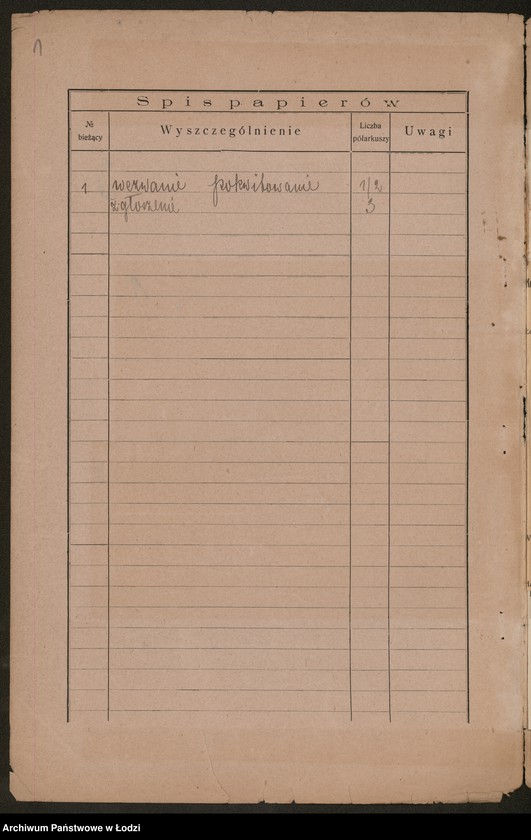 1
Spis papierów
№ bieżący
Wyszczególnienie
Liczba półarkuszy
Uwagi
1 wezwanie pokwitowanie 1/2
zgłoszenie 3
Archiwum Państwowe w Łodzi